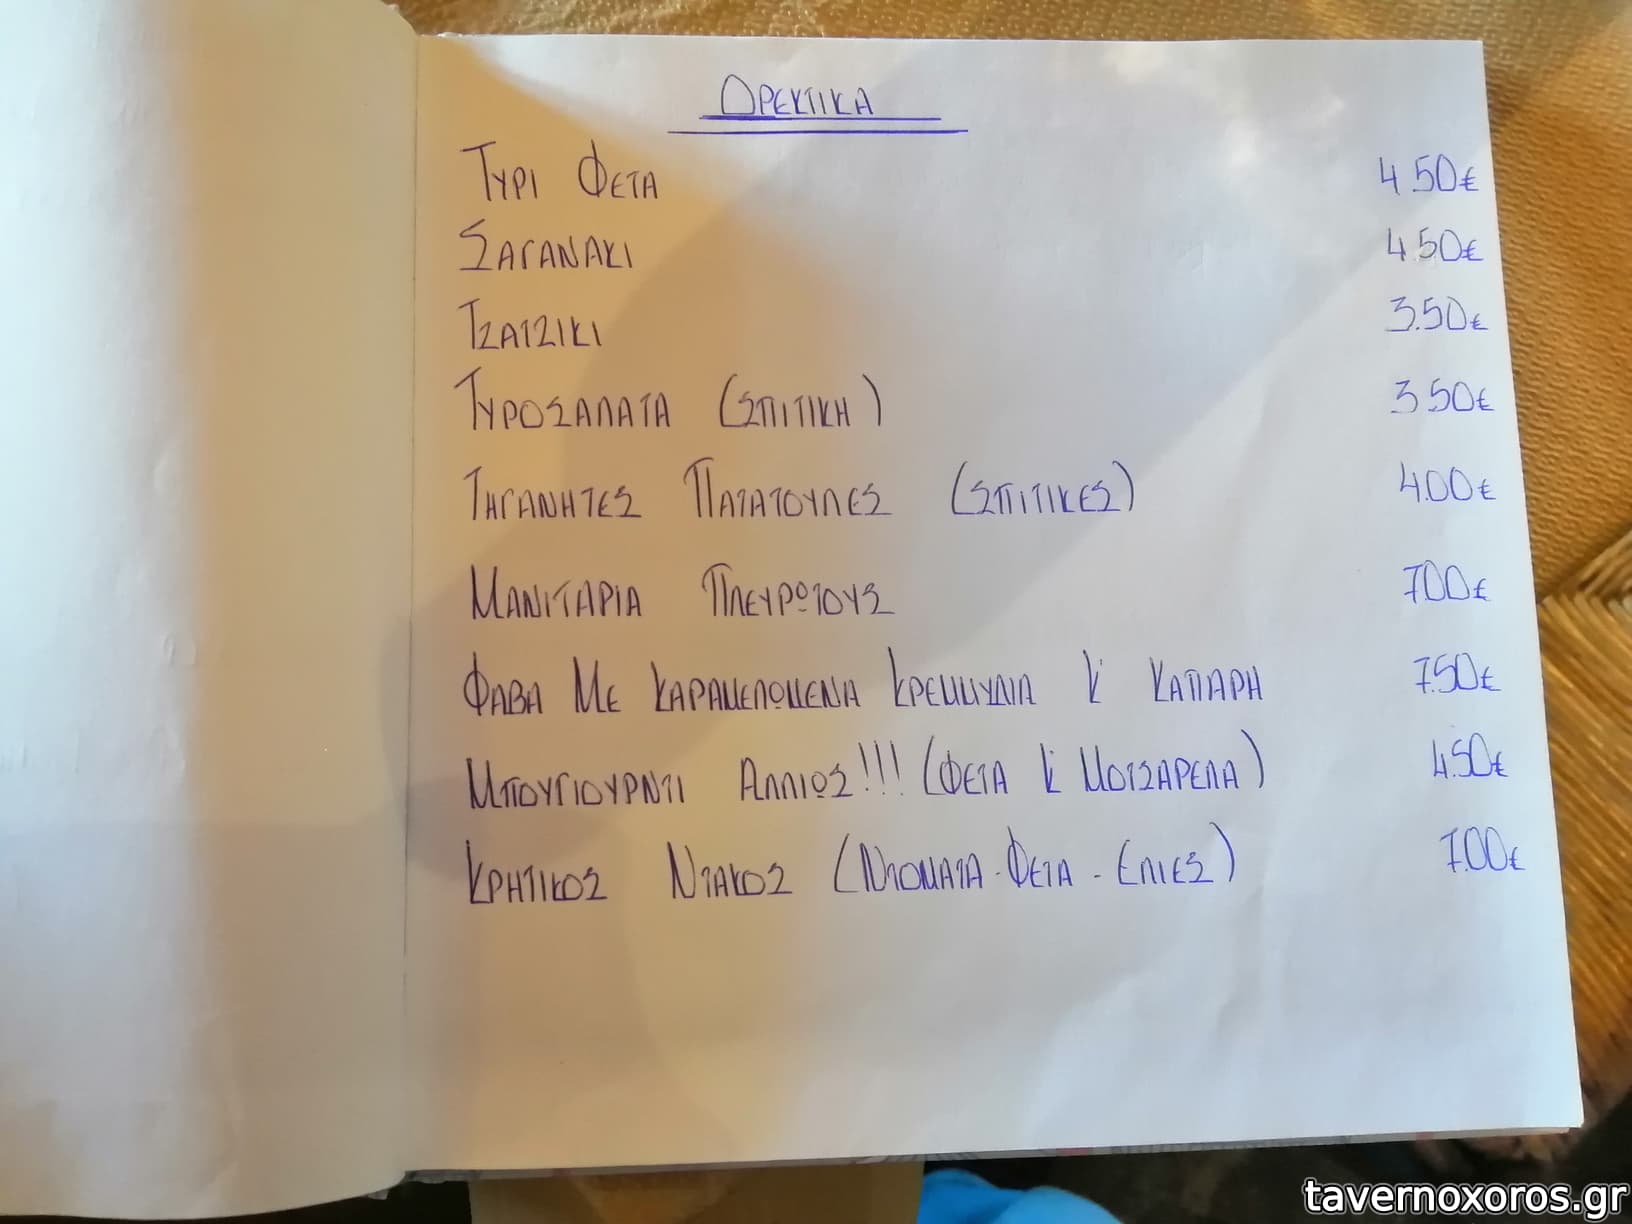 ΟΡΕΚΤΙΚΑ
ΤΥΡΙ ΦΕΤΑ 4.50€
ΣΑΓΑΝΑΚΙ 4.50€
ΤΖΑΤΖΙΚΙ 3.50€
ΤΥΡΟΣΑΛΑΤΑ (ΣΠΙΤΙΚΗ) 3.50€
ΤΗΓΑΝΗΤΕΣ ΠΑΤΑΤΟΥΛΕΣ (ΣΠΙΤΙΚΕΣ) 4.00€
ΜΑΝΙΤΑΡΙΑ ΠΛΕΥΡΩΤΟΥΣ 7.00€
ΦΑΒΑ ΜΕ ΚΑΡΑΜΕΛΩΜΕΝΑ ΚΡΕΜΜΥΔΙΑ Κ' ΚΑΠΑΡΗ 7.50€
ΜΠΟΥΓΙΟΥΡΝΤΙ ΑΛΛΙΩΣ!!! (ΦΕΤΑ Κ' ΜΟΤΣΑΡΕΛΑ) 4.50€
ΚΡΗΤΙΚΟΣ ΝΤΑΚΟΣ (ΝΤΟΜΑΤΑ-ΦΕΤΑ-ΕΛΙΕΣ) 7.00€
tavernoxoros.gr